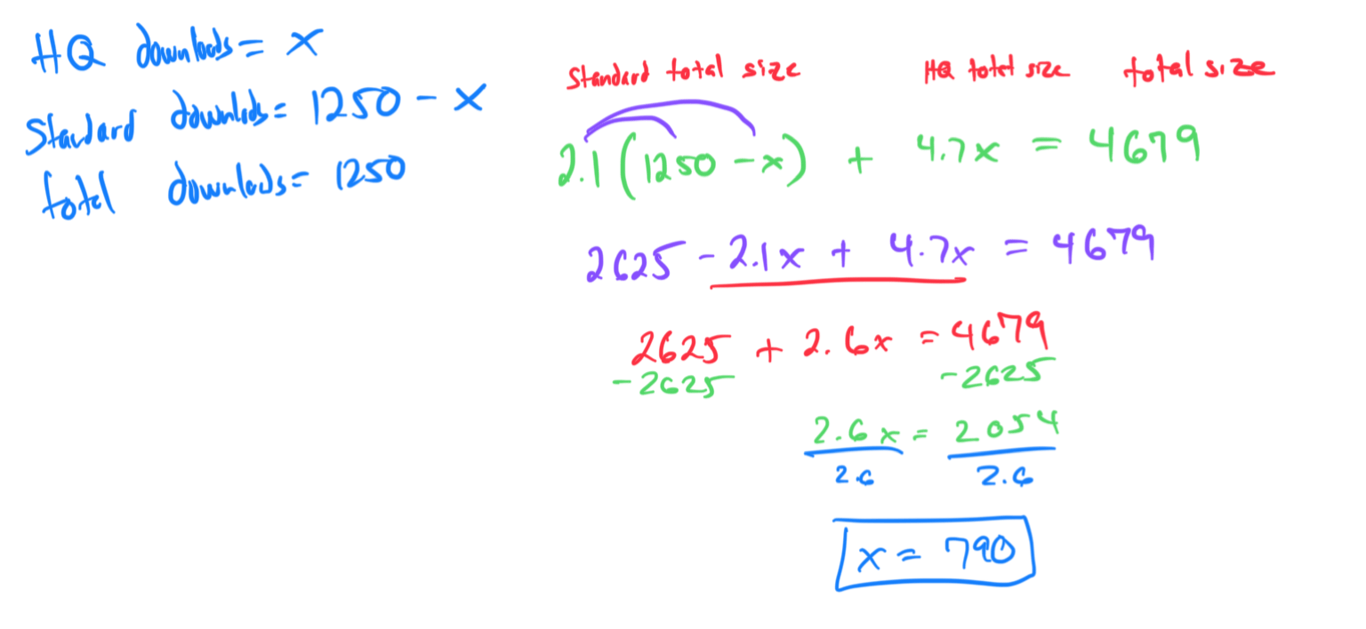 HQ downloads = x
Standard downloads = 1250 - x
total downloads = 1250
Standard total size HQ total size total size
2.1(1250 - x) + 4.7x = 4679
2625 - 2.1x + 4.7x = 4679
2625 + 2.6x = 4679
-2625 -2625
2.6x = 2054
2.6 2.6
x = 790